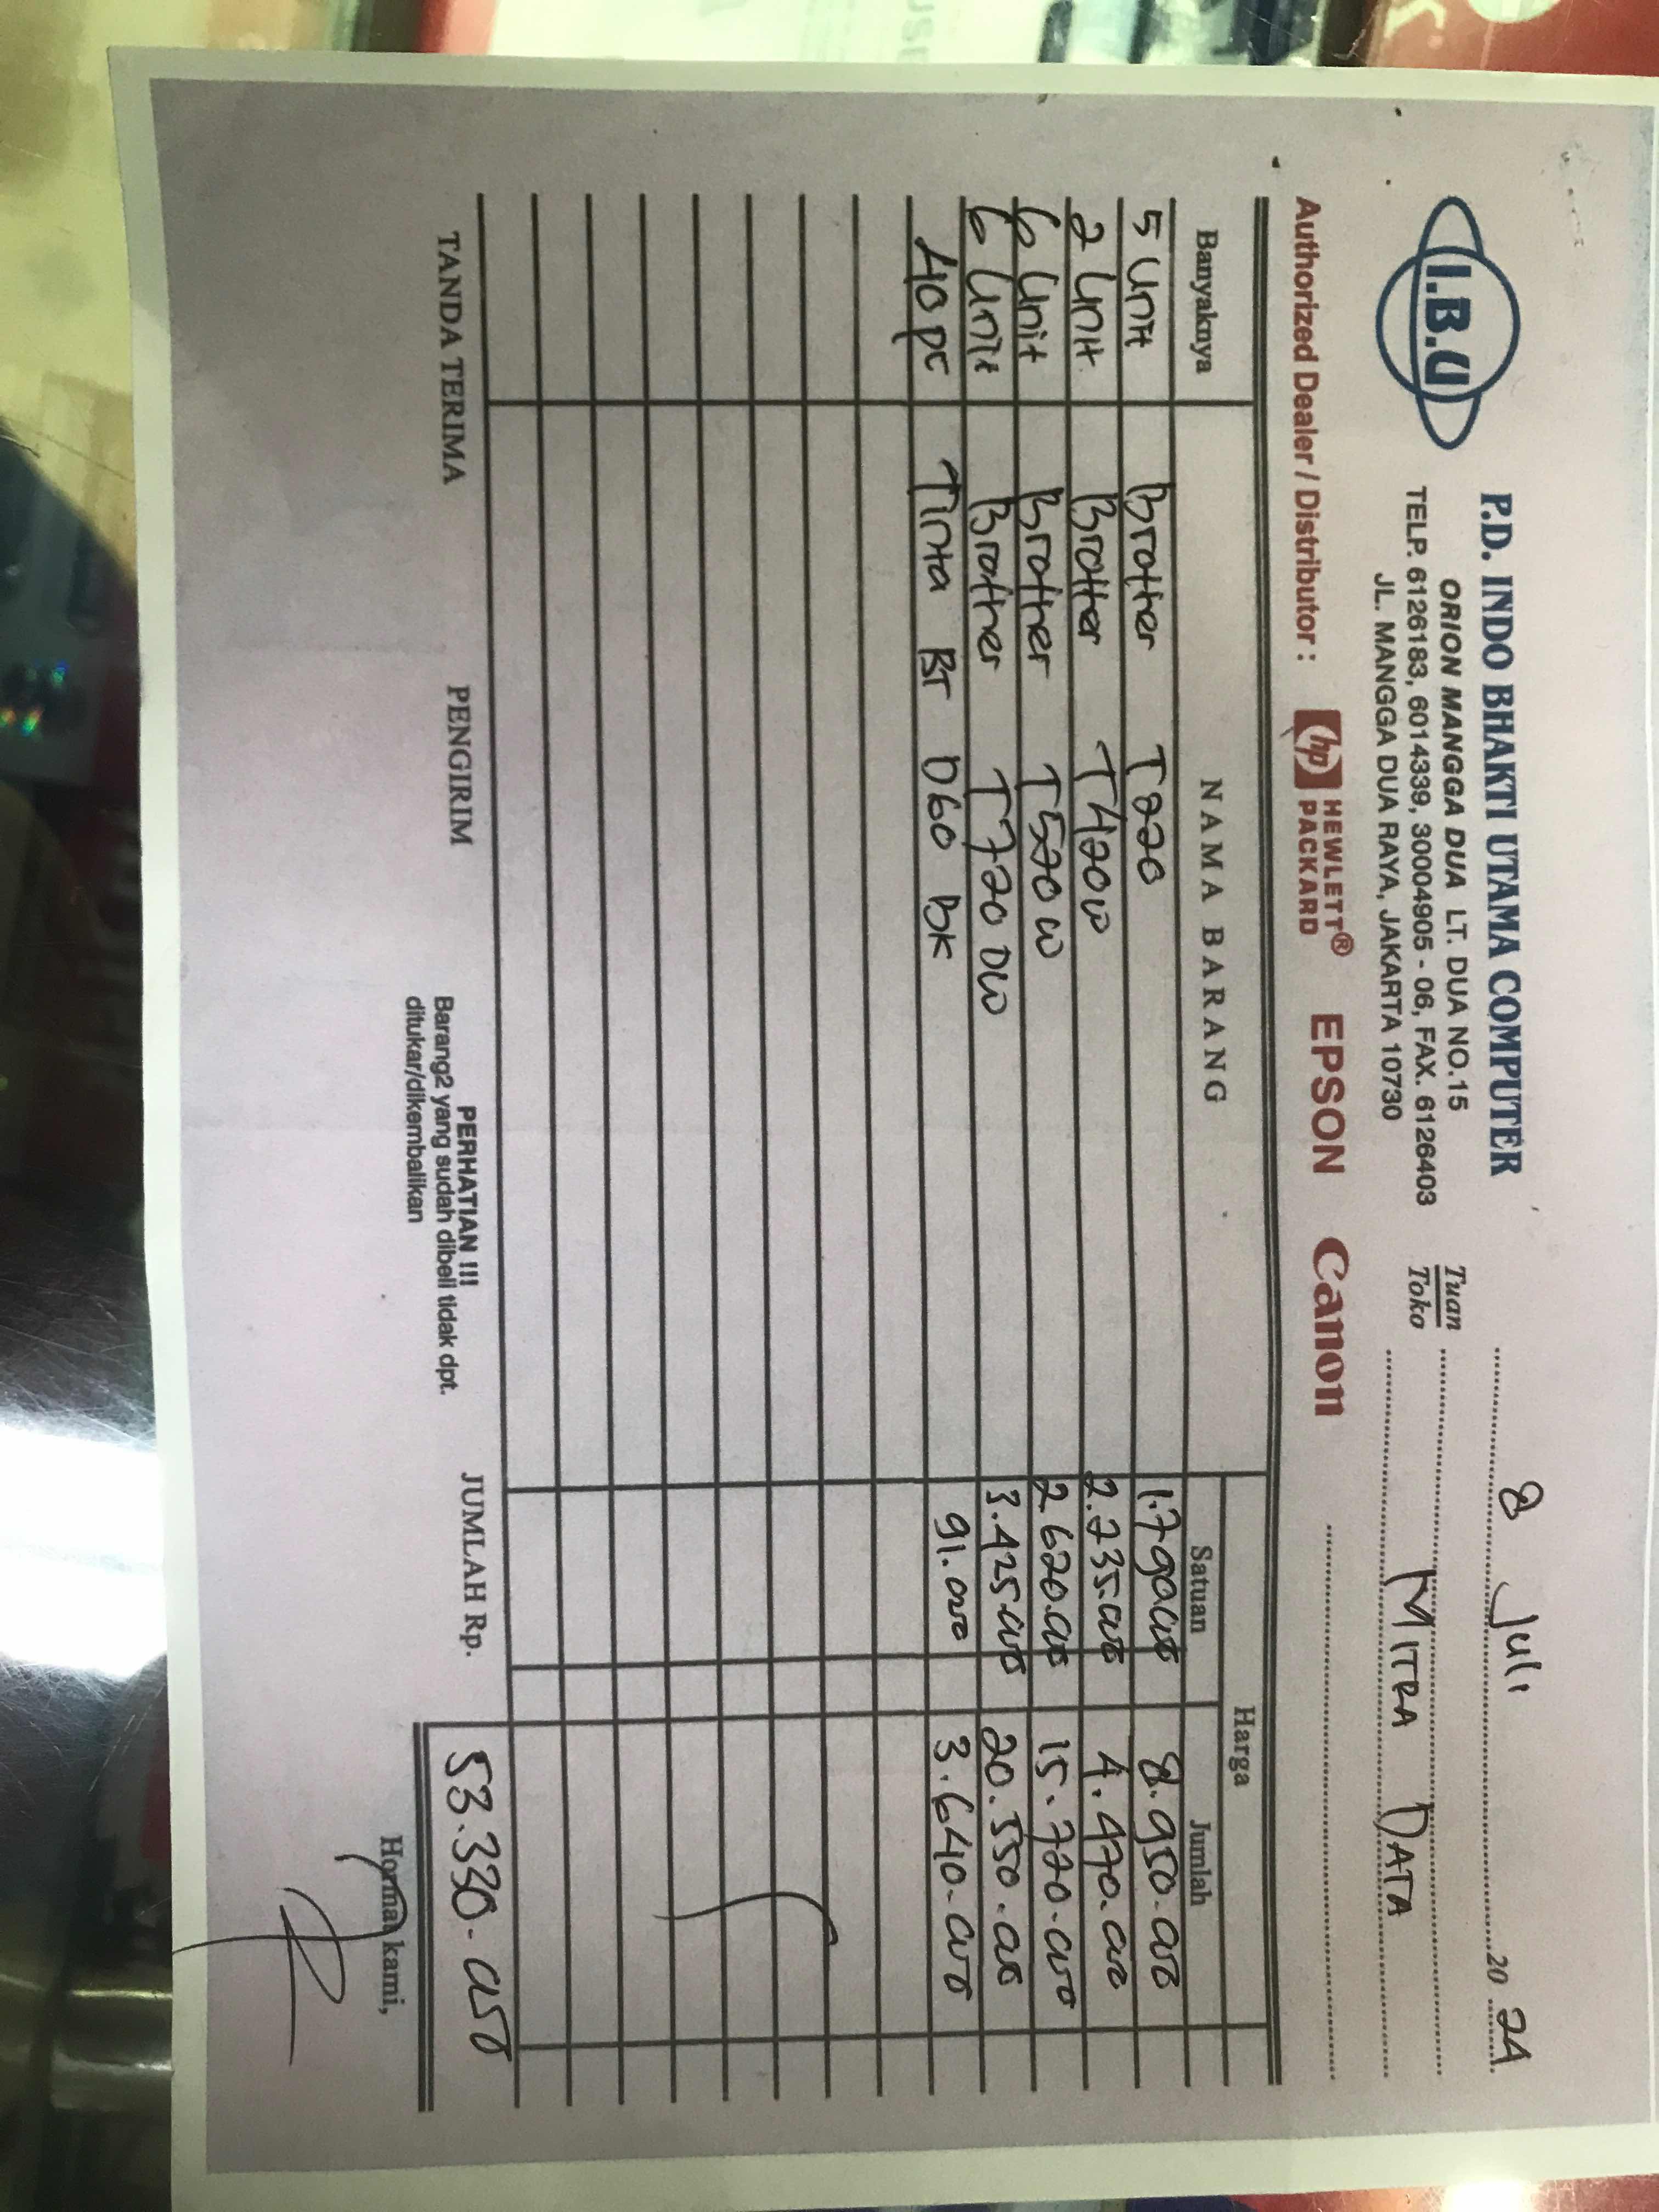 I.B.U
P.D. INDO BHAKTI UTAMA COMPUTER
ORION MANGGA DUA LT. DUA NO.15
TELP. 6126183, 6014339, 30004905 - 06, FAX. 6126403
JL. MANGGA DUA RAYA, JAKARTA 10730
8 Juli 20 24
Tuan
Toko
MITRA DATA
Authorized Dealer / Distributor : hp HEWLETT® PACKARD EPSON Canon
Banyaknya NAMA BARANG Harga
Satuan Jumlah
5 Unit Brother T220 1.790.000 8.950.000
2 Unit Brother T420W 2.235.000 4.470.000
6 Unit Brother T520W 2.620.000 15.720.000
6 Unit Brother T720 DW 3.425.000 20.550.000
40 pc Tinta BT D60 BK 91.000 3.640.000
TANDA TERIMA PENGIRIM JUMLAH Rp. 53.330.000
PERHATIAN !!!
Barang2 yang sudah dibeli tidak dpt.
ditukar/dikembalikan
Hormat kami,